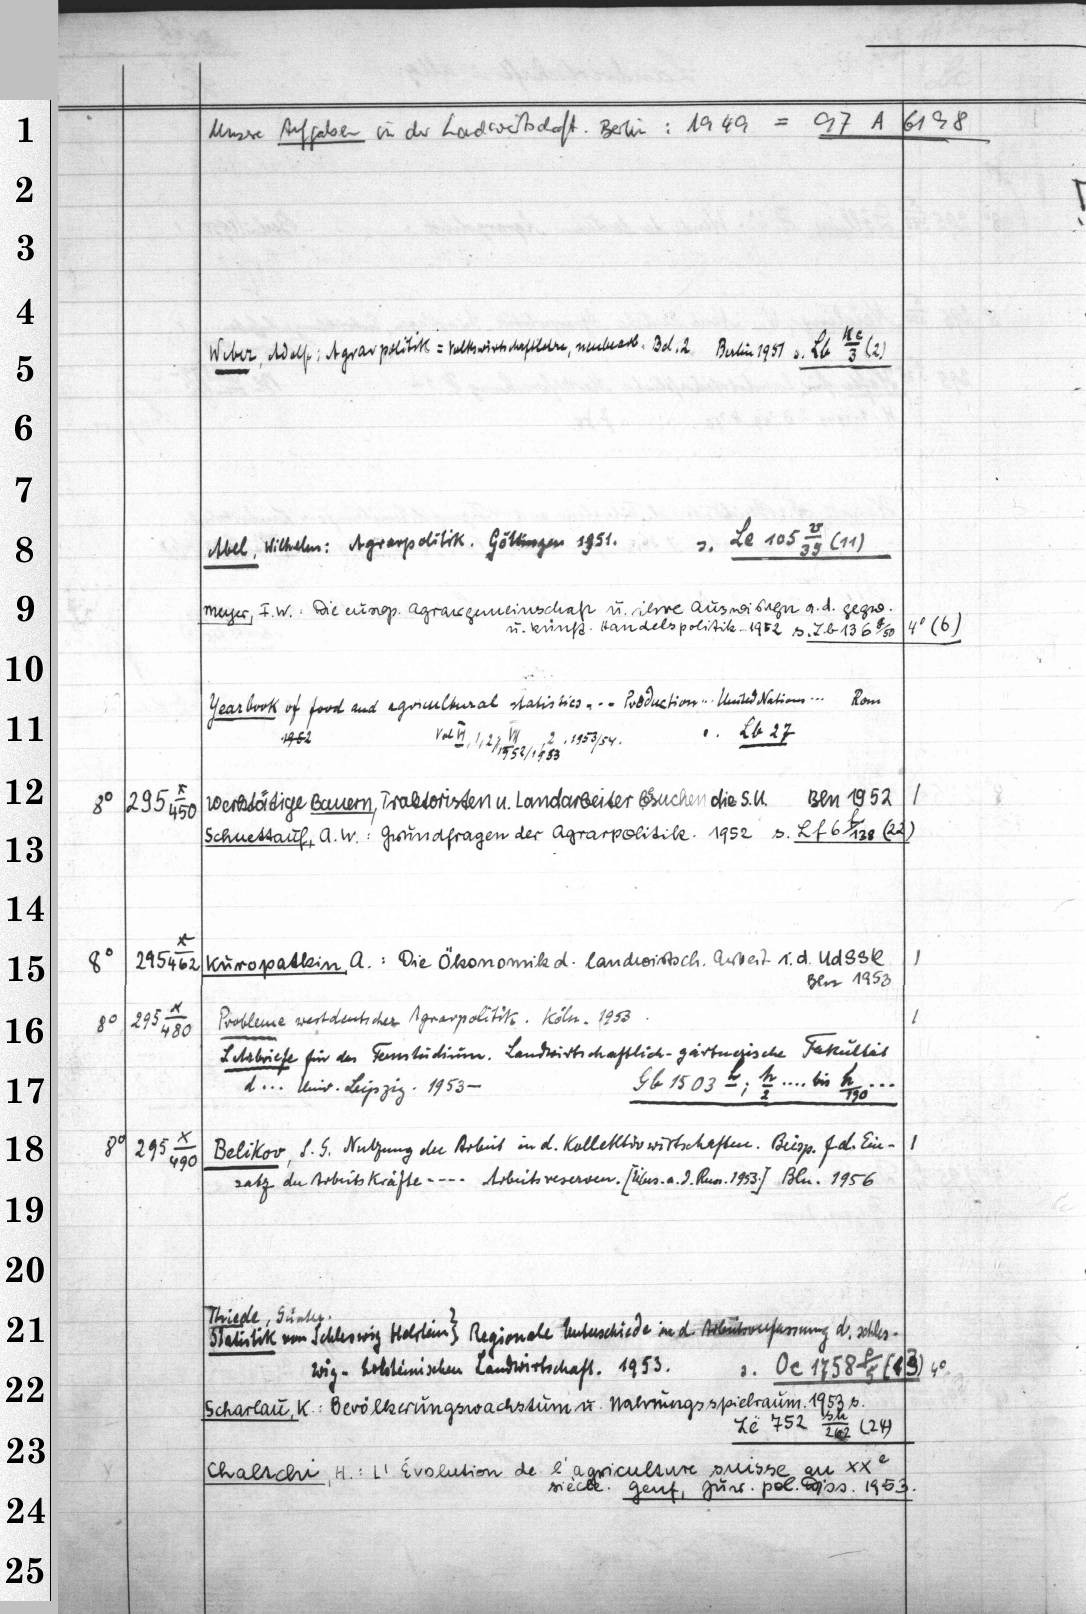 1 Unsere Aufgaben in der Landwirtschaft. Berlin : 1949 = 97 A 6198
2
3
4
5 Weber, Adolf: Agrarpolitik = Volkswirtschaftslehre, neubearb. Bd. 2 Berlin 1951 s. Lb Kc/3 (2)
6
7
8 Abel, Wilhelm: Agrarpolitik. Göttingen 1951. s. Le 105 v/39 (11)
9 Meyer, F.W.: Die europ. Agrargemeinschaft u. ihre Auswirkgn a. d. gegw.
u. künft. Handelspolitik 1952 s. Zb 136 /50 4° (6)
10
Yearbook of food and agricultural statistics... Production... United Nations... Rom
11 1952 Vol VI, 1, 2, VII 1952/1953, 2, 1953/54. s. Lb 27
12 8° 295 x/450 Werktätige Bauern, Traktoristen u. Landarbeiter besuchen die S.U. Bln 1952 1
13 Schuettauf, A.W.: Grundfragen der Agrarpolitik. 1952 s. Lf 6 /138 (22)
14
15 8° 295 x/462 Kuropatkin, A.: Die Ökonomik d. landwirtsch. Arbeit i. d. UdSSR 1
Bln 1953
16 8° 295 x/480 Probleme westdeutscher Agrarpolitik. Köln. 1953. 1
Lehrbriefe für das Fernstudium. Landwirtschaftlich-gärtnerische Fakultät
17 d... Univ. Leipzig. 1953— Gb 1503 h; h/2 .... bis h/190 ...
18 8° 295 x/490 Belikov, S. G. Nutzung der Arbeit in d. Kollektivwirtschaften. Beisp. f. d. Ein- 1
satz der Arbeitskräfte ---- Arbeitsreserven. [Übers. a. d. Russ. 1953.] Bln. 1956
19
20
Thiede, Günter.
21 Statistik von Schleswig Holstein} Regionale Unterschiede in d. Arbeitsverfassung d. schles-
wig-holsteinischen Landwirtschaft. 1953. s. Oc 1758 /5 (13) 4°
22 Scharlau, K.: Bevölkerungswachstum u. Nahrungsspielraum. 1953 s.
23 Ze 752 /262 (24)
Chalschi, H.: L'Évolution de l'agriculture suisse au XXe
24 siècle. Genf, jur. pol. Diss. 1953.
25